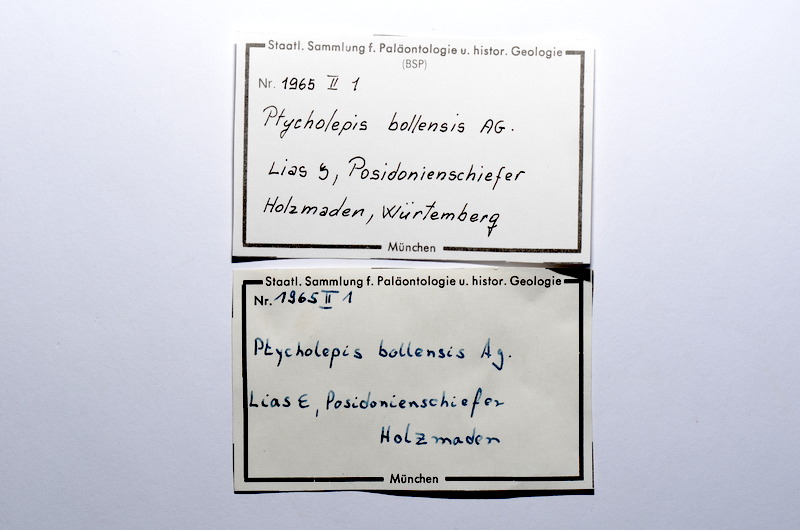 Staatl. Sammlung f. Paläontologie u. histor. Geologie
(BSP)
Nr. 1965 II 1
Ptycholepis bollensis AG.
Lias ε, Posidonienschiefer
Holzmaden, Würtemberg
München
Staatl. Sammlung f. Paläontologie u. histor. Geologie
Nr. 1965 II 1
Ptycholepis bollensis Ag.
Lias ε, Posidonienschiefer
Holzmaden
München